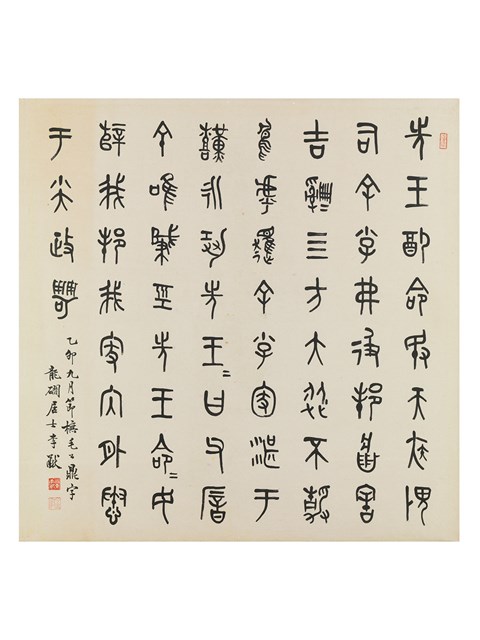 先王配命敃天疾畏
司余小子弗彶邦將害
吉䛐䛐四方大從不靜
烏虖趯余小子圂湛于
艱永巩先王王曰父厝
今唯肇巠先王命命女
辥我邦我家內外惷
于小大政甹
乙卯九月節橅毛公鼎字
龍磵居士李猷